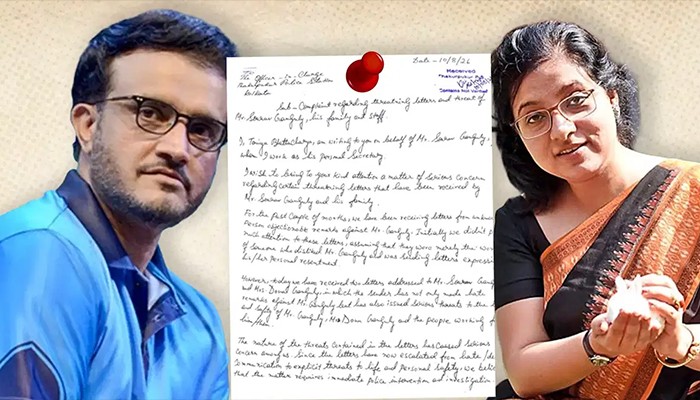 Date - 10/8/26
To
The Officer - in - Charge
Thakurpukur Police Station
Kolkata
Received
Thakurpukur P.S
Contents not Verified
Sub - Complaint regarding threatening letters and threat of
Mr. Sourav Ganguly, his family and staff.
I, Taniya Bhattacharya, am writing to you on behalf of Mr. Sourav Ganguly,
whom I work as his personal Secretary.
I wish to bring to your kind attention a matter of serious concern
regarding certain threatening letters that have been received by
Mr Sourav Ganguly and his family.
For the past couple of months, we have been receiving letters from unknown
person objectionable remarks against Mr. Ganguly. Initially we didn't p
much attention to these letters, assuming that they were merely the wor
of someone who disliked Mr Ganguly and was sending letters expressi
his/her personal resentment.
However, today we have received two letters addressed to Mr. Sourav Gang
and Mrs. Dona Ganguly, in which the sender has not only made hate
remarks against Mr Ganguly but has also issued serious threats to the l
and safety of Mr. Ganguly, Mrs Dona Ganguly and the people working f
him/her.
The nature of the threats contained in the letters has caused serious
concern among us. Since the letters have now escalated from hate / de
communication to explicit threats to life and personal safety, we belie
that the matter requires immediate police intervention and investigation